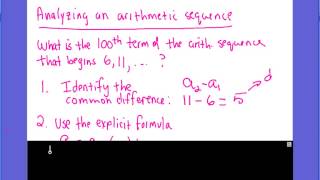 Analyzing an arithmetic sequence
What is the 100th term of the arith sequence
that begins 6, 11, ... ?
1. Identify the common difference:
a₂-a₁
11-6=5
d
2. Use the explicit formula